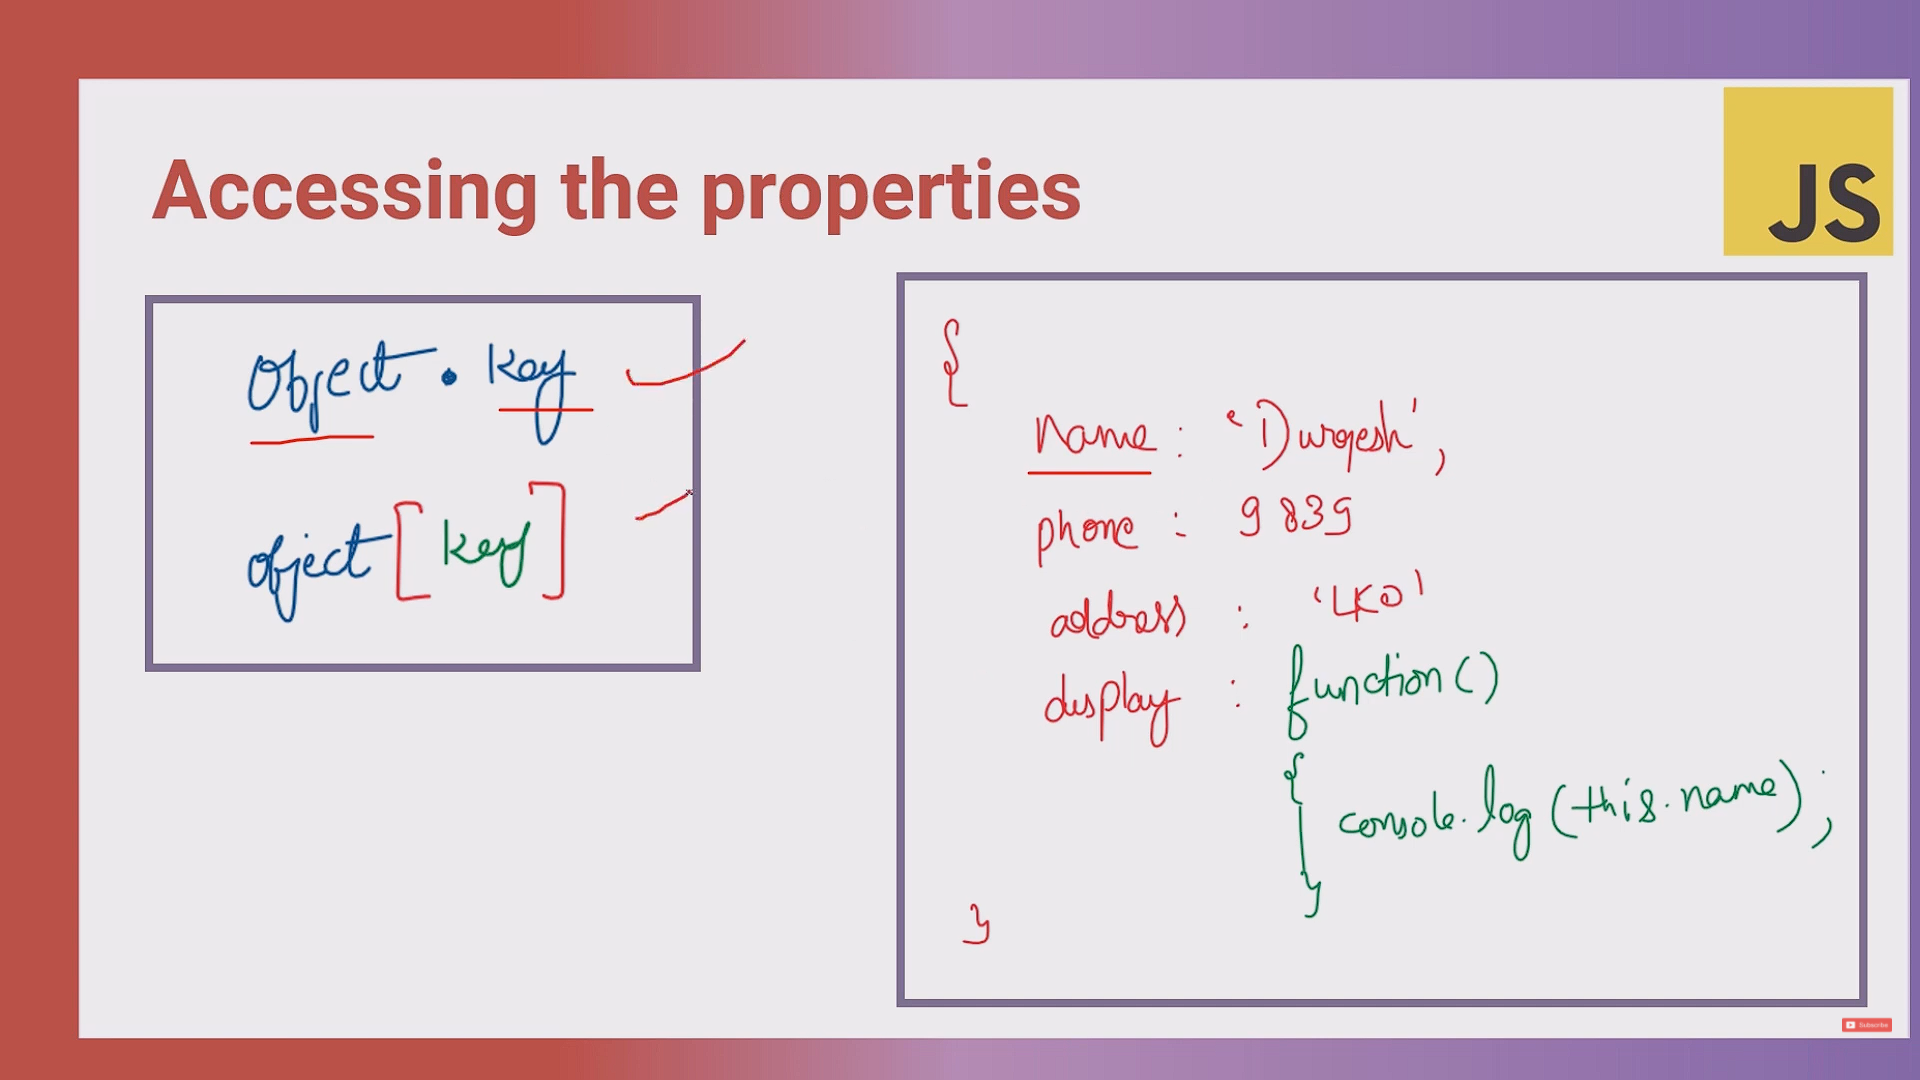 JS
Accessing the properties
Object . key
object [ key ]
{
Name : 'Durgesh',
phone : 9839
address : 'LKO'
display : function()
{ console.log(this.name);
}
}
Subscribe